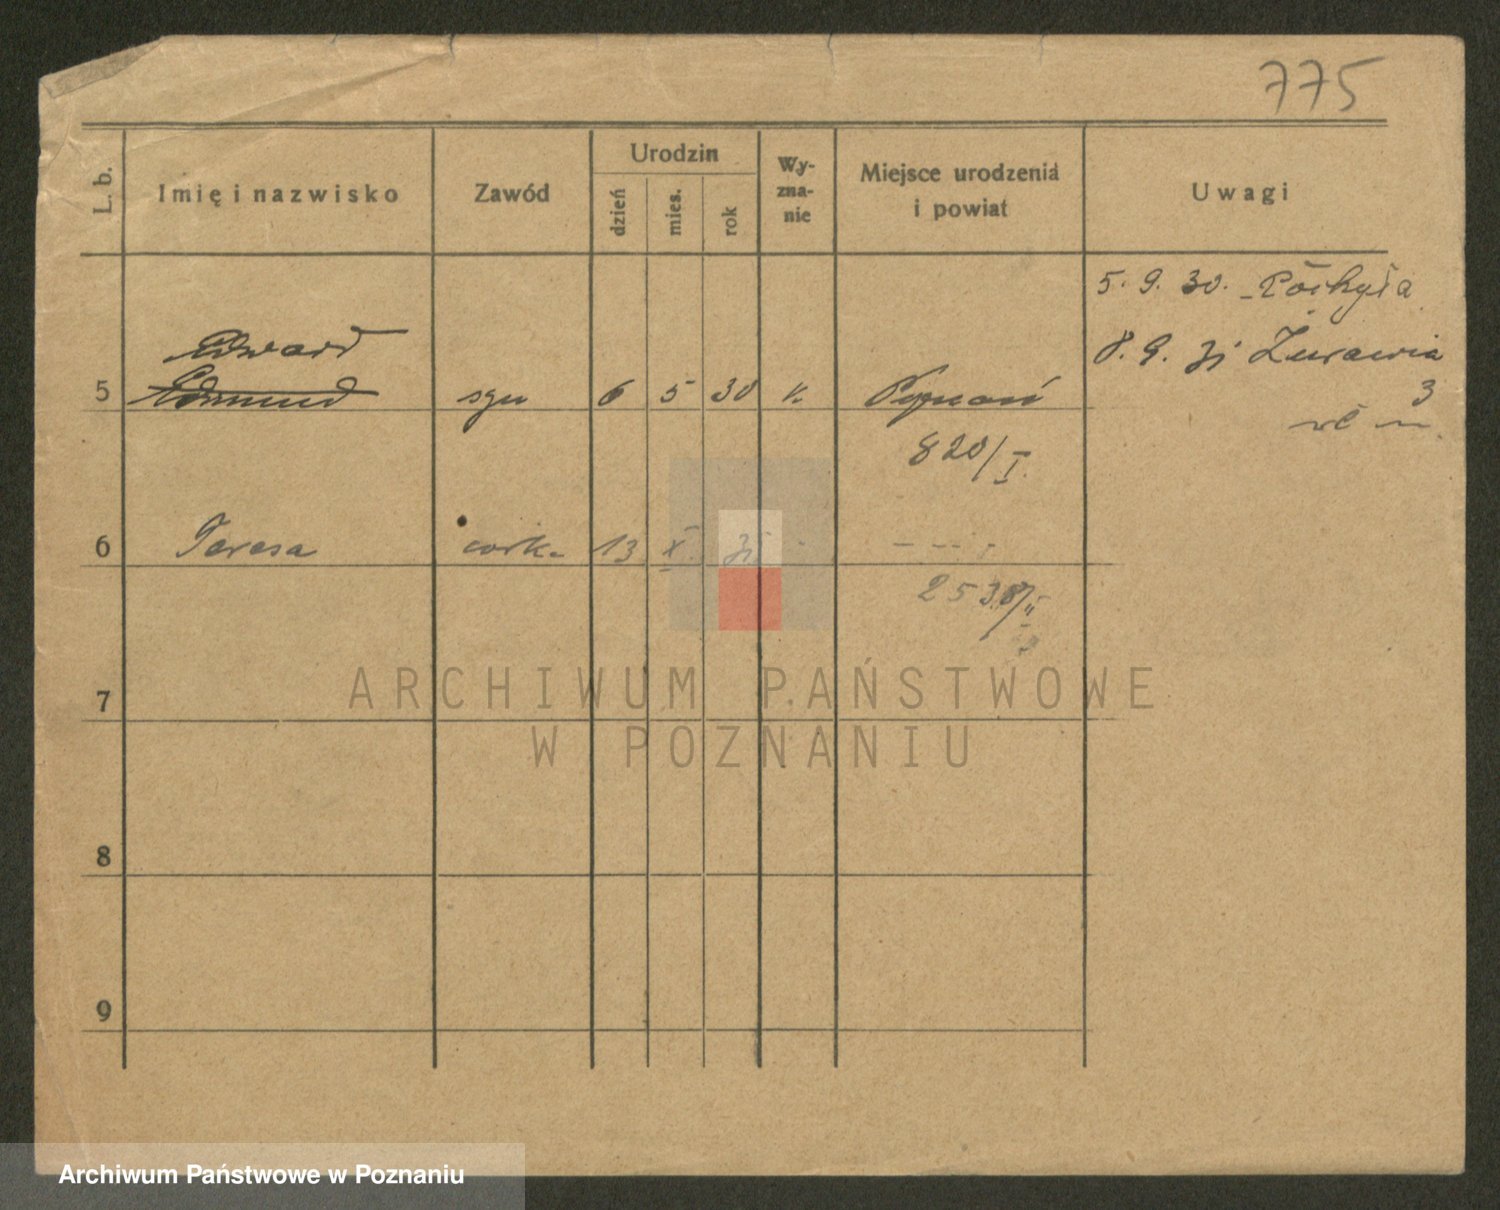 775
L. b. Imię i nazwisko Zawód Urodzin dzień mies. rok Wy-zna-nie Miejsce urodzenia i powiat Uwagi
5. 9. 30.
8. 9. 31 Żurawia
3
Edward
5 Edmund syn 6 5 30 k. Poznań
820/I.
6 Teresa córk. 13 X 31 - - - -
2538/II
7
8
9
ARCHIWUM PAŃSTWOWE
W POZNANIU
Archiwum Państwowe w Poznaniu